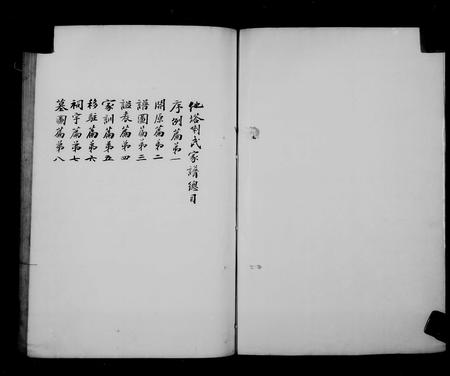 他塔喇氏家譜總目
序例篇第一
開原篇第二
譜圖篇第三
譜表篇第四
家訓篇第五
移駐篇第六
祠宇篇第七
墓圖篇第八